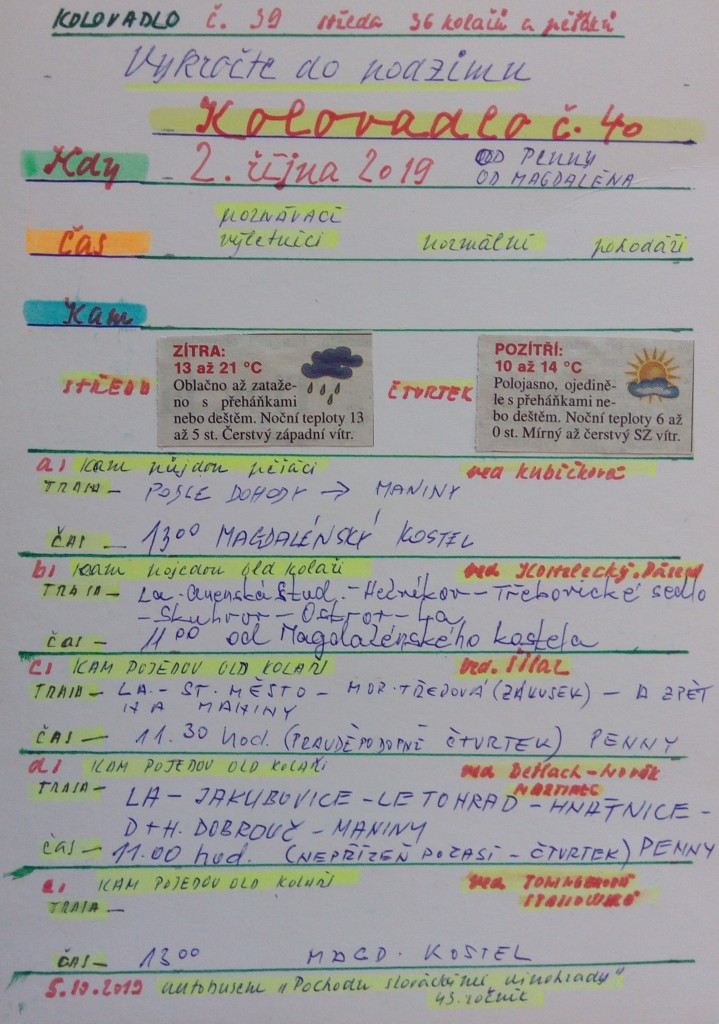 KOLOVADLO č. 39 středa 36 kolařů a pěšáků
Vykročte do podzimu
Kolovadlo č. 40
Kdy 2. října 2019 OD PENNY
OD MAGDALÉNA
poznávací
Čas výletníci normální pohodáři
Kam
STŘEDU
ZÍTRA:
13 až 21 °C
Oblačno až zataže-
no s přeháňkami
nebo deštěm. Noční teploty 13
až 5 st. Čerstvý západní vítr.
ČTVRTEK
POZÍTŘÍ:
10 až 14 °C
Polojasno, ojedině-
le s přeháňkami ne-
bo deštěm. Noční teploty 6 až
0 st. Mírný až čerstvý SZ vítr.
a) kam půjdou pěšáci ved Kubíčková
TRASA - PODLE DOHODY → MANINY
ČAS - 13⁰⁰ MAGDALÉNSKÝ KOSTEL
b) kam pojedou old kolaři ved
TRASA - La - Anenská Stud. - Helvíkov - Třebovické sedlo
- Skuhrov - Ostrov - La
ČAS - 11⁰⁰ od Magdalénského kostela
c) KAM POJEDOU OLD KOLAŘI ved. Šilar
TRASA - LA. - ST. MĚSTO - MOR. TŘEBOVÁ (ZÁKUSEK) - A ZPĚT
NA MANINY
ČAS - 11.30 hod. (PRAVDĚPODOBNĚ ČTVRTEK) PENNY
d) KAM POJEDOU OLD KOLAŘI ved Detlach - Novák
MARTINEC
TRASA - LA - JAKUBOVICE - LETOHRAD - HNÁTNICE -
D+H. DOBROUČ - MANINY
ČAS - 11.00 hod. (NEPŘÍZEŇ POČASÍ - ČTVRTEK) PENNY
e) KAM POJEDOU OLD KOLAŘI ved
TRASA -
ČAS - 13⁰⁰ MAGD. KOSTEL
5.10.2019 autobusem "Pochodu slováckými vinohrady"
43. ročník